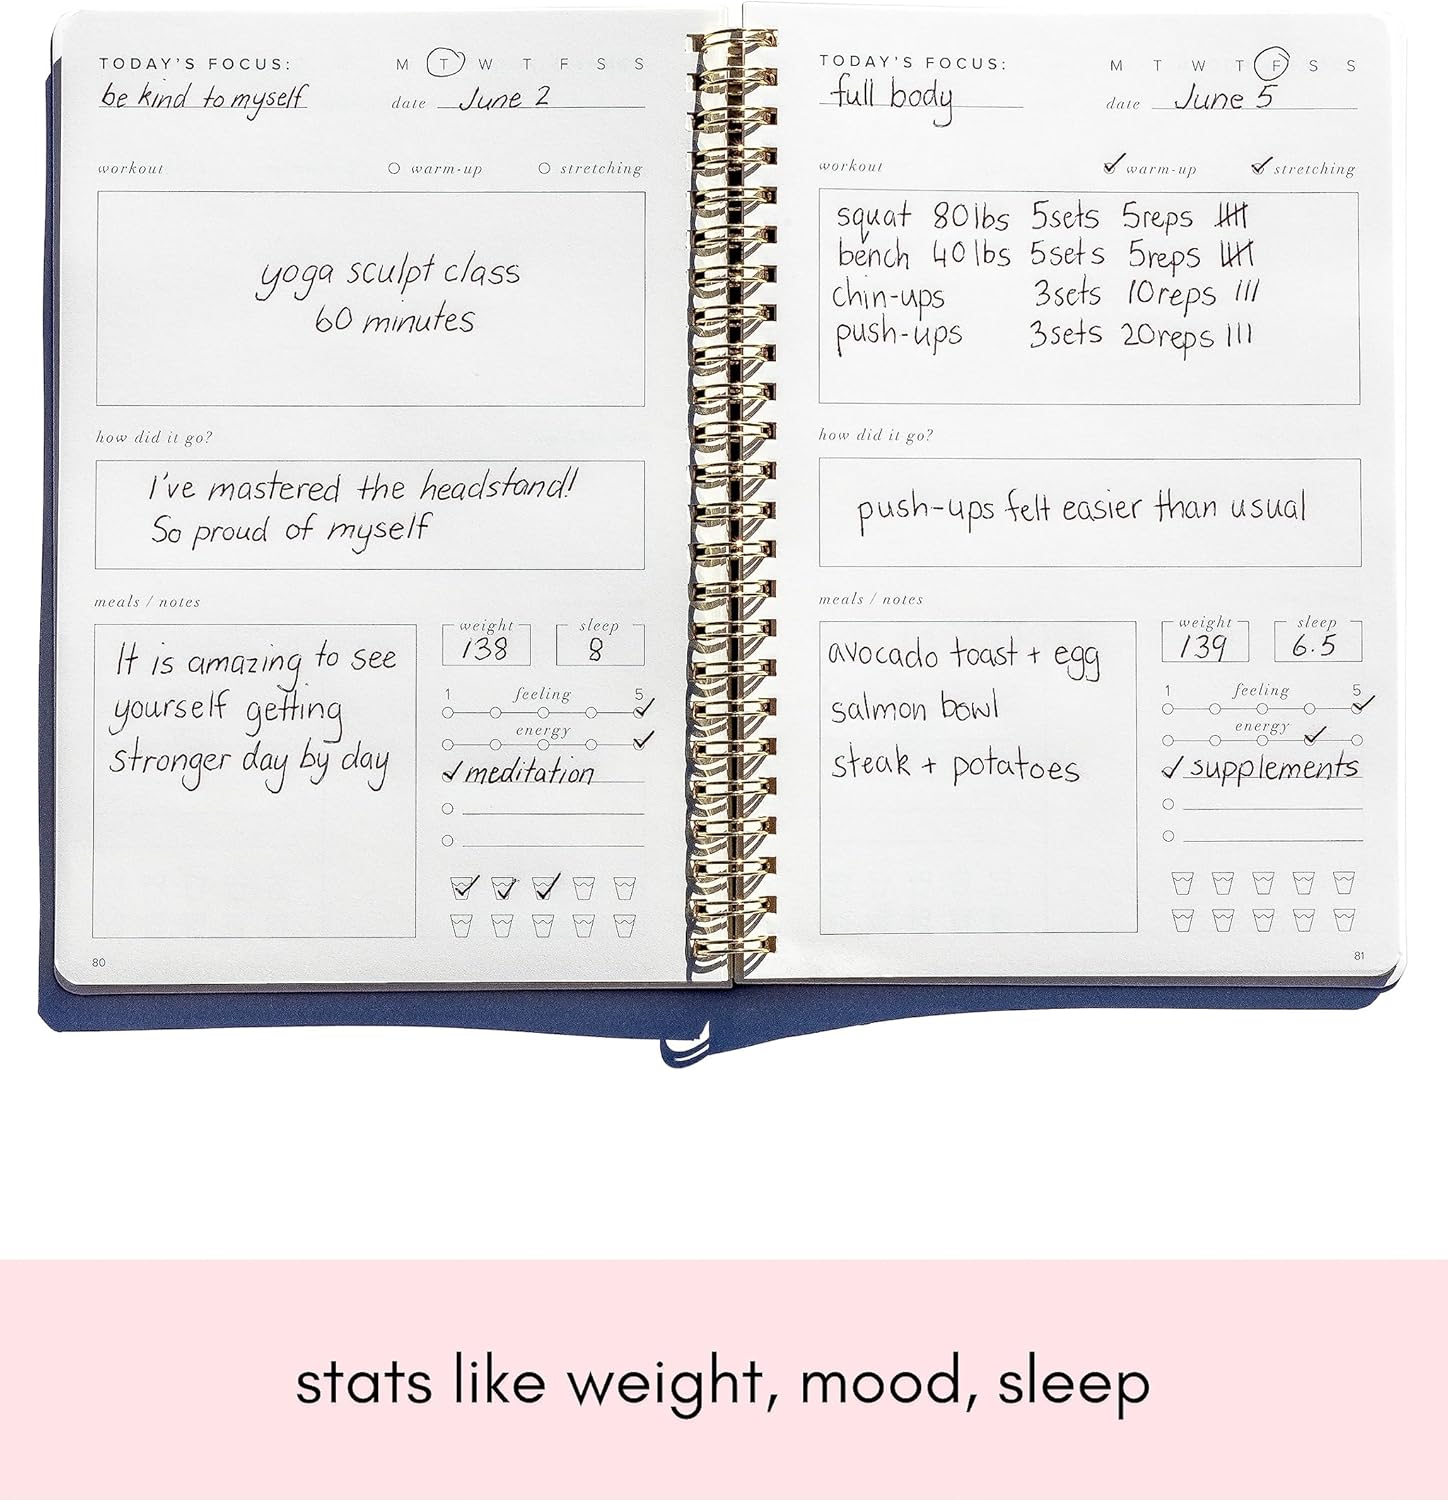 TODAY'S FOCUS: M T W T F S S
be kind to myself date June 2
workout warm-up stretching
yoga sculpt class
60 minutes
how did it go?
I've mastered the headstand!
So proud of myself
meals / notes
It is amazing to see
yourself getting
stronger day by day
weight sleep
138 8
1 feeling 5
energy
meditation
80
TODAY'S FOCUS: M T W T F S S
full body date June 5
workout warm-up stretching
squat 80lbs 5sets 5reps
bench 40lbs 5sets 5reps
chin-ups 3sets 10reps
push-ups 3sets 20reps
how did it go?
push-ups felt easier than usual
meals / notes
avocado toast + egg
salmon bowl
steak + potatoes
weight sleep
139 6.5
1 feeling 5
energy
supplements
81
stats like weight, mood, sleep